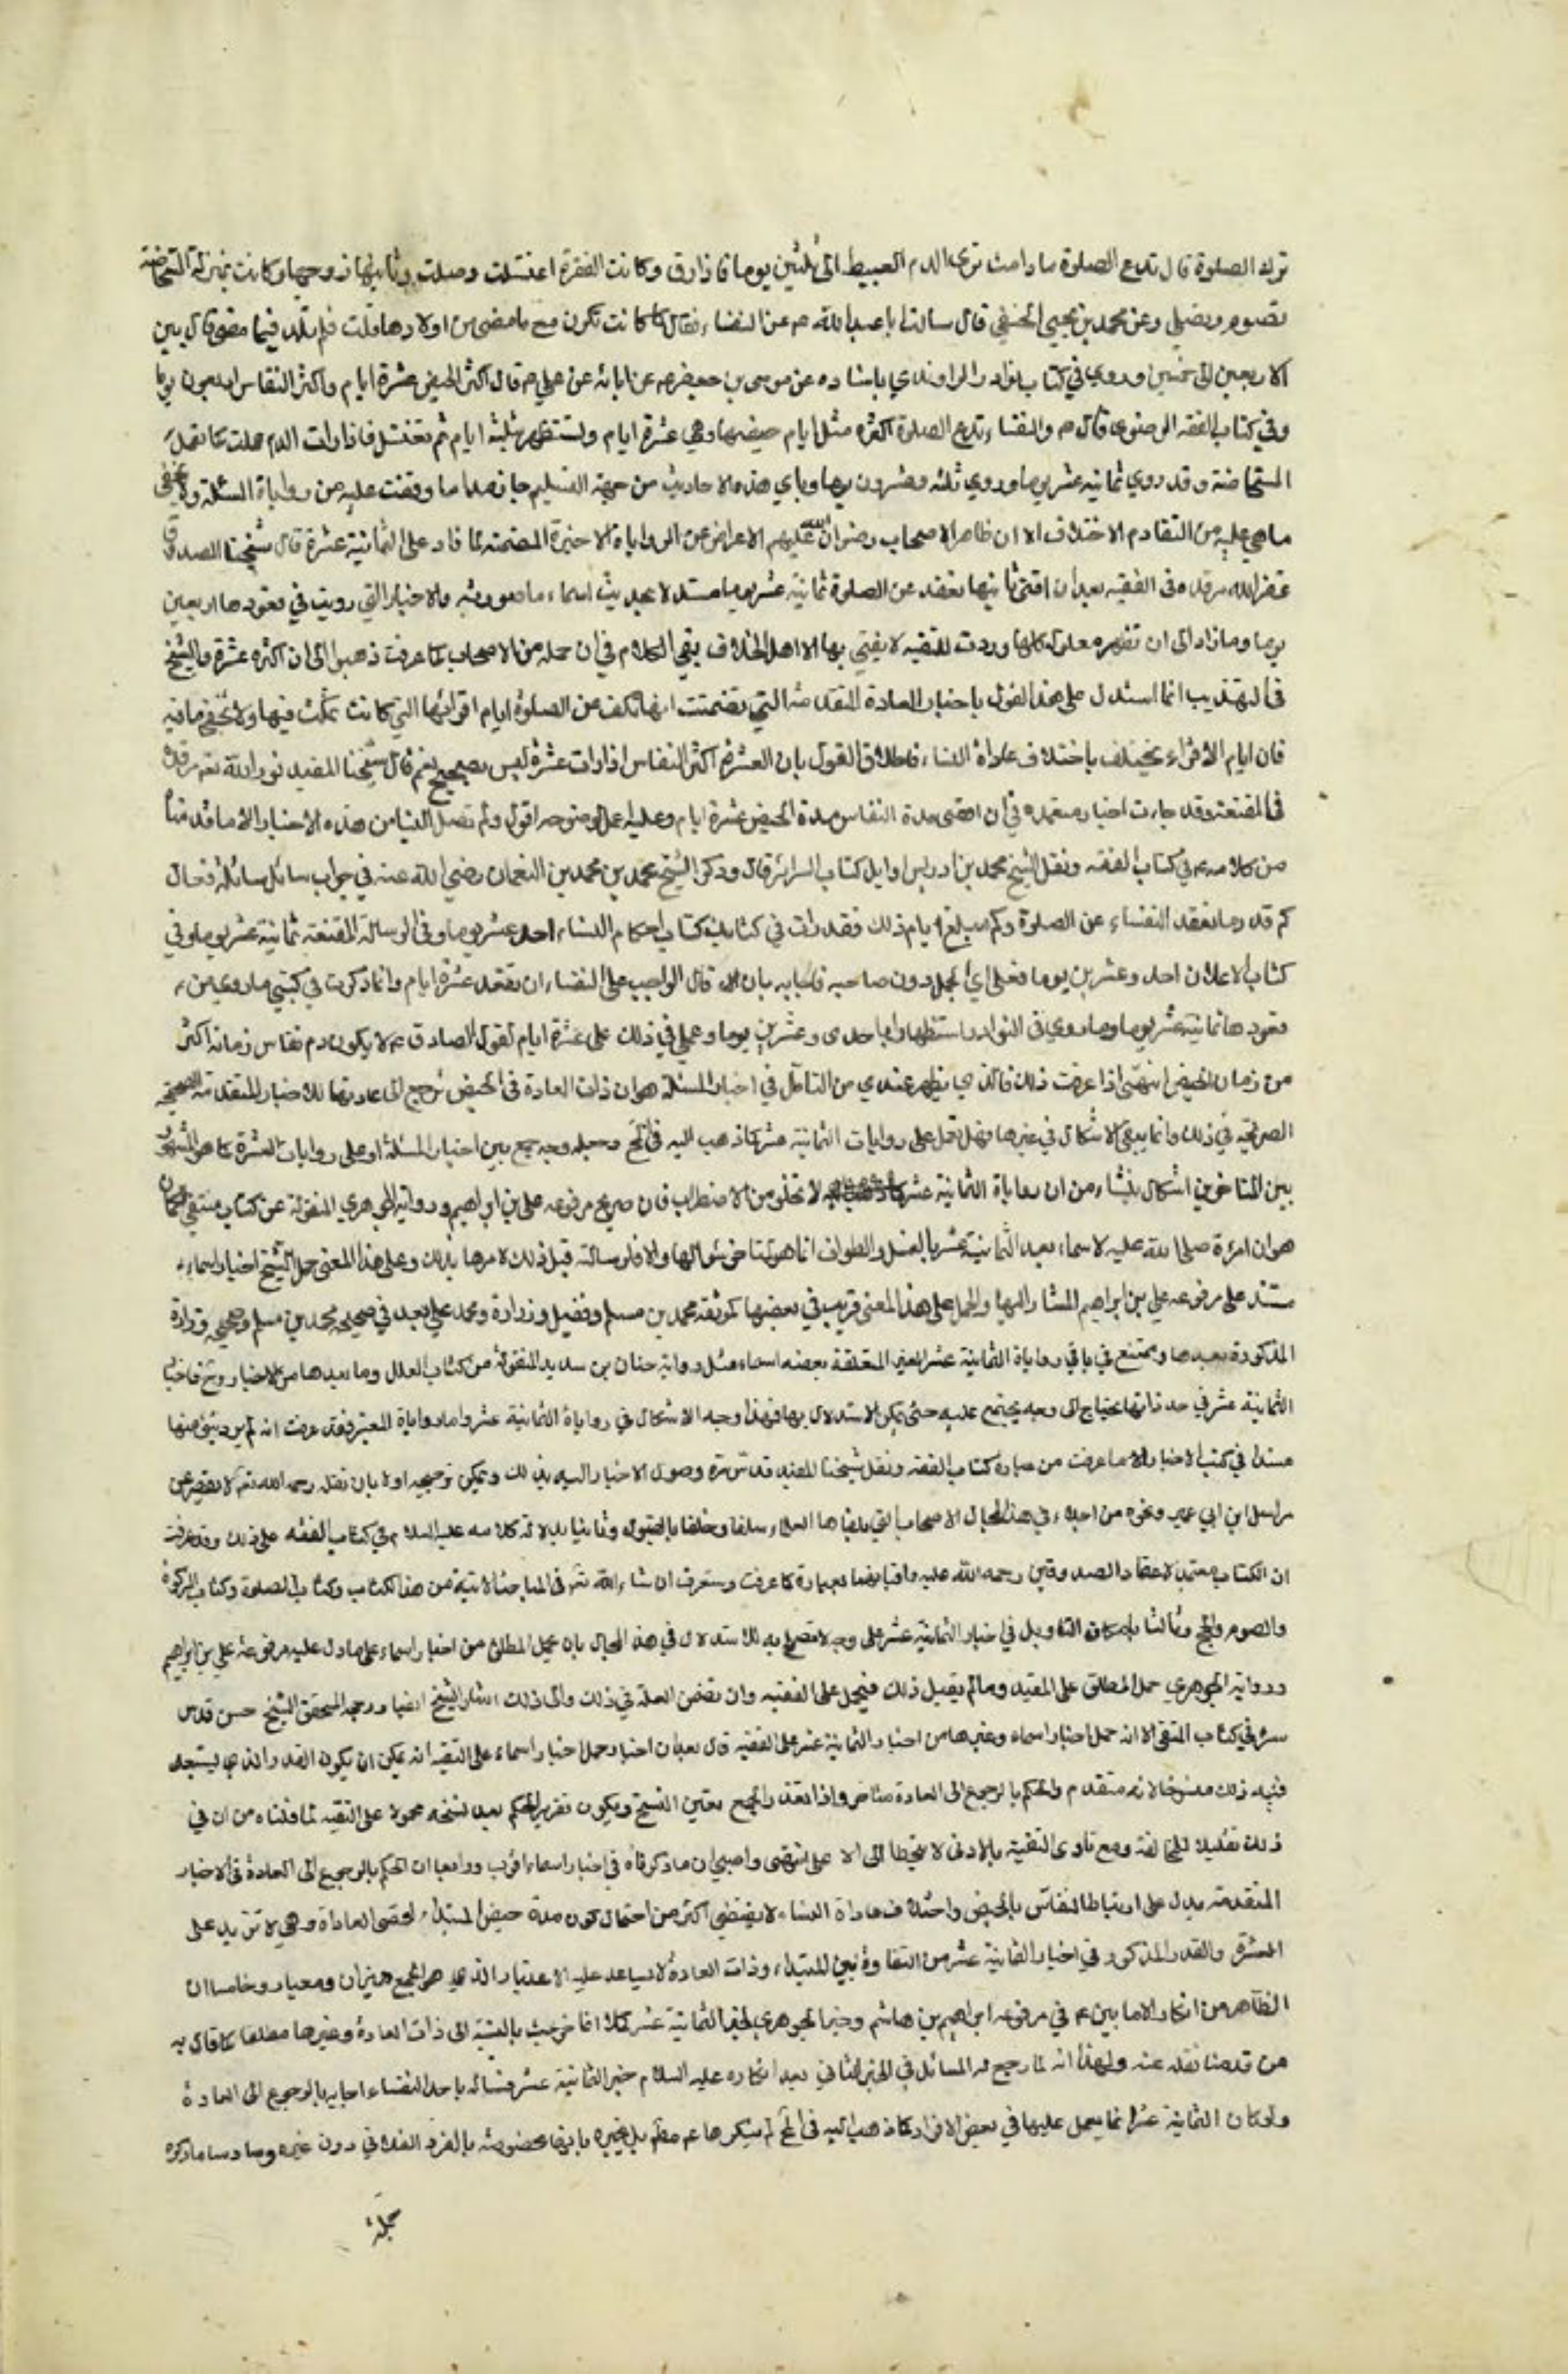 ترك الصلوة قال تدع الصلوة ما دامت ترى الدم العبيط الى ثلثين يوما فاذا رق وكانت الصفرة اغتسلت وصلت وياتيها زوجها وكانت بمنزلة المستحاضة
تصوم وتصلي وعن محمد بن يحيى الخثعمي قال سالت ابا عبد الله عم عن النفساء فقال كما كانت تكون مع ما مضى من اولادها قلت فلم تلد فيما مضى قال بين
الاربعين الى خمسين وروي في كتاب نوادر الراوندي باسناده عن موسى بن جعفر عم عن ابائه عن علي عم قال اكثر الحيض عشرة ايام واكثر النفاس اربعون يوما
وفي كتاب الفقه الرضوي قال عم والنفساء تدع الصلوة اكثره مثل ايام حيضها وهي عشرة ايام وتستظهر بثلثة ايام ثم تغتسل فاذا رات الدم عملت كما تعمل
المستحاضة وقد روي ثمانية عشر يوما وروي ثلثة وعشرون يوما وباي هذه الاحاديث من جهة التسليم جاز هذا ما وقفت عليه من روايات المسئلة ولا يخفى
ما هي عليه من التصادم الاختلاف الا ان ظاهر الاصحاب رضوان الله عليهم الاعراض عن الروايات الاخيرة المتضمنة لما زاد على الثمانية عشرة قال شيخنا الصدوق
عطر الله مرقده في الفقيه بعد ان افتى بانها تقعد عن الصلوة ثمانية عشر يوما مستدلا بحديث اسماء ما صورته والاخبار التي رويت في قعودها اربعين
يوما وما زاد الى ان تطهر معلولة كلها وردت للتقية لا يفتي بها الا اهل الخلاف بقي الكلام في ان جملة من الاصحاب كما عرفت ذهبوا الى ان اكثره عشرة والشيخ
في التهذيب انما استدل على هذا القول باخبار العادة المتقدمة التي تضمنت انها تكف عن الصلوة ايام اقرائها التي كانت تمكث فيها ولا يخفى ما فيه
فان ايام الاقراء تختلف باختلاف عادات النساء فاطلاق القول بان العشرة اكثر النفاس اذا رات عشرة ليس بصحيح نعم قال شيخنا المفيد نور الله تعه مرقده
في المقنعة وقد جاءت اخبار معتمدة في ان اقصى مدة النفاس مدة الحيض عشرة ايام وعليه اعمل لوضوحه اقول ولم تصل الينا من هذه الاخبار الا ما قدمنا
من كلامه عم في كتاب الفقه ونقل الشيخ محمد بن ادريس اوايل كتاب السرائر قال وذكر الشيخ محمد بن محمد بن النعمان رضي الله عنه في جواب سائل سائله فقال
كم قدر ما تقعد النفساء عن الصلوة وكم مبلغ ايام ذلك فقد رات في كتابك كتاب احكام النساء احد عشر يوما وفي الرسالة المقنعة ثمانية عشر يوما وفي
كتاب الاعلان احد وعشرين يوما فعلى ايها العمل دون صاحبه فاجابه بان قال الواجب على النفساء ان تقعد عشرة ايام وانما ذكرت في كتبي ما روي من
قعودها ثمانية عشر يوما وما روي في النوادر استظهارا باحدى وعشرين يوما وعملي في ذلك على عشرة ايام لقول الصادق عم لا يكون دم نفاس زمانه اكثر
من زمان الحيض انتهى اذا عرفت ذلك فالذي يظهر عندي من التامل في اخبار المسئلة هو ان ذات العادة في الحيض ترجع الى عادتها للاخبار المتقدمة الصحيحة
الصريحة في ذلك وانما يبقى الاشكال في غيرها فهل تعمل على روايات الثمانية عشر كما ذهب اليه في لف وجعله وجه جمع بين اخبار المسئلة او على روايات العشرة كما هو المشهور
بين المتاخرين اشكال ينشاء من ان روايات الثمانية عشر لا تخلو من الاضطراب فان صريح مرفوعة علي بن ابراهيم ورواية الجوهري المنقولة عن كتاب منتقى الجمان
هو ان امره صلى الله عليه لاسماء بعد الثمانية عشر بالغسل والطواف انما هو لتاخر سوالها والا فلو سالته قبل ذلك لامرها بذلك وعلى هذا المعنى حمل الشيخ اخبار اسماء
مستند على مرفوعة علي بن ابراهيم المشار اليها والحمل على هذا المعنى قريب في بعضها كموثقة محمد بن مسلم وفضيل وزرارة ومحمد بعيد في صحيحة محمد بن مسلم وصحيحة زرارة
المذكورة بعدها وممتنع في باقي روايات الثمانية عشر الغير المتعلقة بعضه اسماء مثل رواية حنان بن سدير المنقولة من كتاب العلل وما بعدها من الاخبار وح فاخبار
الثمانية عشر في حد ذاتها تحتاج الى وجه تجتمع عليه حتى يمكن الاستدلال بها فهذا وجه الاشكال في روايات الثمانية عشر واما روايات العشرة فقد عرفت انه لم يرد شئ منها
مسندا في كتب الاخبار الا ما عرفت من عبارة كتاب الفقه ونقل شيخنا المفيد قدس سره وصول الاخبار اليه بذلك ويمكن ترجيحه اولا بان نقله رحمه الله تعه لا يقصر عن
مراسيل ابن ابي عمير ونحوه من اجلاء في هذا المجال الاصحاب التي تلقاها العلماء سلفا وخلفا بالقبول وثانيا بدلالة كلامه عليه السلام في كتاب الفقه على ذلك وقد عرفت
ان الكتاب معتمد لاعتماد الصدوقين رحمه الله عليه وافتائهما بعبارة كما عرفت وستعرف ان شاء الله تعه في المباحث الاتية من هذا الكتاب وكتاب الصلوة وكتاب الزكوة
والصوم والحج وثالثا بامكان التاويل في اخبار الثمانية عشر على وجه لا تصلح به للاستدلال في هذا المجال بان يحمل المطلق من اخبار اسماء على ما دل عليه مرفوعة علي بن ابراهيم
ورواية الجوهري حمل المطلق على المقيد وما لم يقبل ذلك فيحمل على التقية وان تضمن العلة في ذلك والى ذلك اشار الشيخ ايضا ورجحه المحقق الشيخ حسن قدس
سره في كتاب المنتقى الا انه حمل اخبار اسماء وغيرها من اخبار الثمانية عشر على التقية قال بعد ان اختار حمل اخبار اسماء على التقية انه يمكن ان يكون القدر الذي يستبعد
فيه ذلك منسوخا لانه متقدم والحكم بالرجوع الى العادة متاخر واذا تعذر الجمع تعين النسخ ويكون تقرير الحكم بعد نسخه محمولا على التقية لما قلناه من ان في
ذلك تقليلا للمخالفة ومع تادى التقية بالادنى لا يتخطا الى الاعلى انتهى واحسب ان ما ذكرناه في اخبار اسماء اقرب ورابعا ان الحكم بالرجوع الى العادة في الاخبار
المتقدمة يدل على ارتباط النفاس بالحيض واختلاف عادات النساء لا يقتضي اكثر من احتمال كون مدة حيض المبتداء لاقصى العادات وهي لا تزيد على
العشرة والقدر المذكور في اخبار الثمانية عشر من التفاوة بين المبتداء وذات العادة لا يساعد عليه الاعتبار الذي هو للجمع ميزان ومعيار وخامسا ان
الظاهر من انكار الامامين عم في مرفوعة ابراهيم بن هاشم وخبر الجوهري لخبر الثمانية عشر خرجت بالنسبة الى ذات العادة وغيرها مطلقا كما قال به
من قدمنا نقله عنه ولهذا انه لما رجع له المسائل في الخبر الثاني بعد انكاره عليه السلام خبر الثمانية عشر فسأله با حد النفساء اجابه بالرجوع الى العادة
ولو كان الثمانية عشر انما يعمل عليها في بعض الافراد كما ذهب اليه في لف لم ينكرها عم مطلقا بل يخبره بانها مخصوصة بالفرد الفلاني دون غيره وسادسا ما ذكره